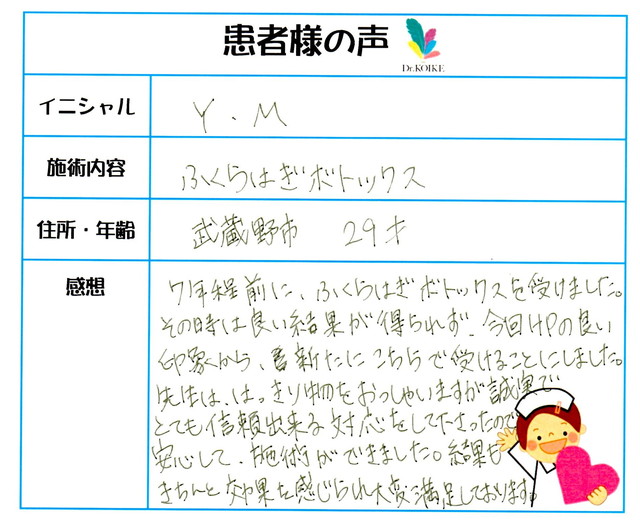 患者様の声
Dr.KOIKE
イニシャル Y.M
施術内容 ふくらはぎボトックス
住所・年齢 武蔵野市 29才
感想
7年程前に、ふくらはぎボトックスを受けました。
その時は良い結果が得られず、今回HPの良い
印象から、新たにこちらで受けることにしました。
先生は、はっきり物をおっしゃいますが誠実で
とても信頼出来る対応をして下さったので
安心して、施術ができました。結果も
きちんと効果を感じられ大変満足しております。